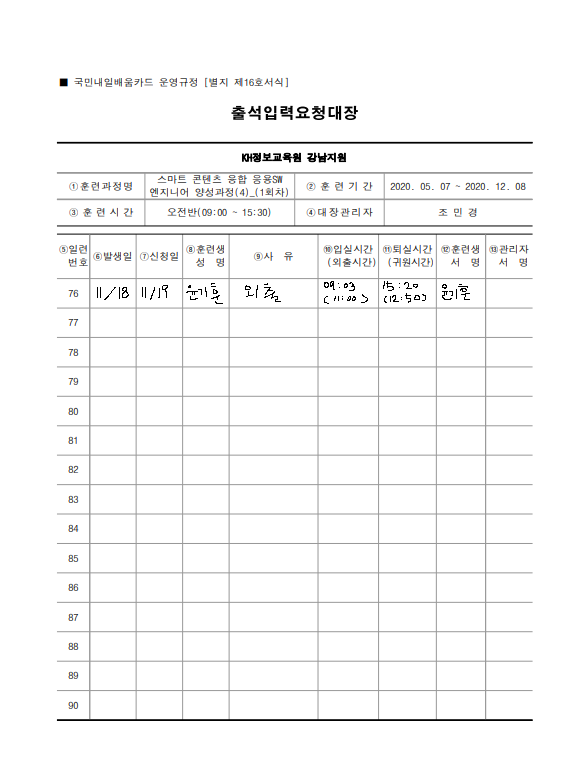 ■ 국민내일배움카드 운영규정 [별지 제16호서식]
출석입력요청대장
KH정보교육원 강남지원
①훈련과정명 스마트 콘텐츠 융합 응용SW 엔지니어 양성과정(4)_(1회차) ② 훈 련 기 간 2020. 05. 07 ~ 2020. 12. 08
③ 훈 련 시 간 오전반(09:00 ~ 15:30) ④대장관리자 조 민 경
⑤일련번호 ⑥발생일 ⑦신청일 ⑧훈련생 성 명 ⑨사 유 ⑩입실시간 (외출시간) ⑪퇴실시간 (귀원시간) ⑫훈련생 서 명 ⑬관리자 서 명
76 11/18 11/19 윤기훈 외출 09:03 (11:00) 15:20 (12:50) 윤기훈
77
78
79
80
81
82
83
84
85
86
87
88
89
90